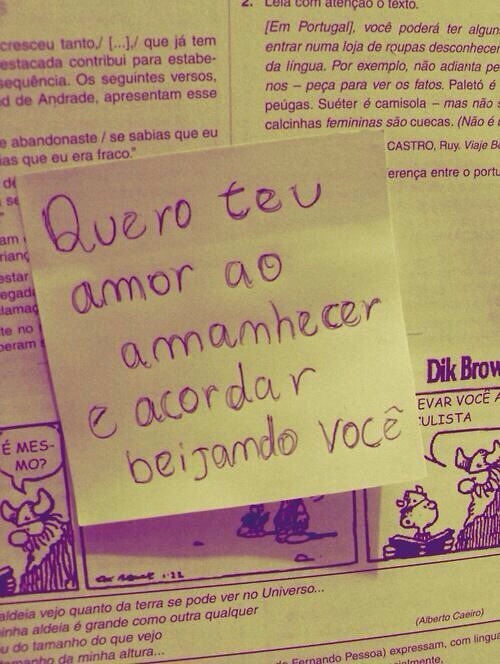 2. Leia com atenção o texto.
[Em Portugal], você poderá ter algun
entrar numa loja de roupas desconhecen
da língua. Por exemplo, não adianta pe
nos – peça para ver os fatos. Paletó é
peúgas. Suéter é camisola – mas não s
calcinhas femininas são cuecas. (Não é
CASTRO, Ruy. Viaje Be
erença entre o portu
cresceu tanto,/ [...],/ que já tem
estacada contribui para estabe-
sequência. Os seguintes versos,
d de Andrade, apresentam esse
e abandonaste / se sabias que eu
ias que eu era fraco."
Quero teu
amor ao
amamhecer
e acordar
beijamdo você
Dik Brow
É MES-
MO?
EVAR VOCÊ A
ULISTA
aldeia vejo quanto da terra se pode ver no Universo...
inha aldeia é grande como outra qualquer
u do tamanho do que vejo
tamanho da minha altura...
(Alberto Caeiro)
Fernando Pessoa) expressam, com lingua